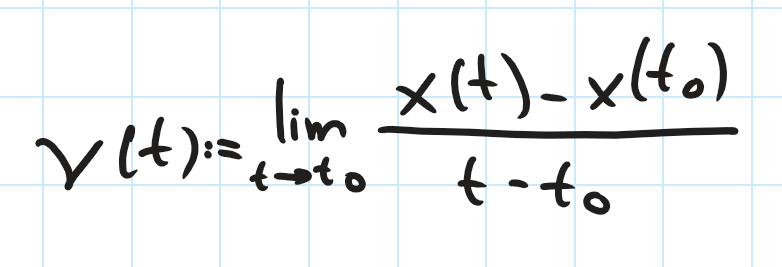 v(t):= lim t→t₀ (x(t) - x(t₀))/(t - t₀)